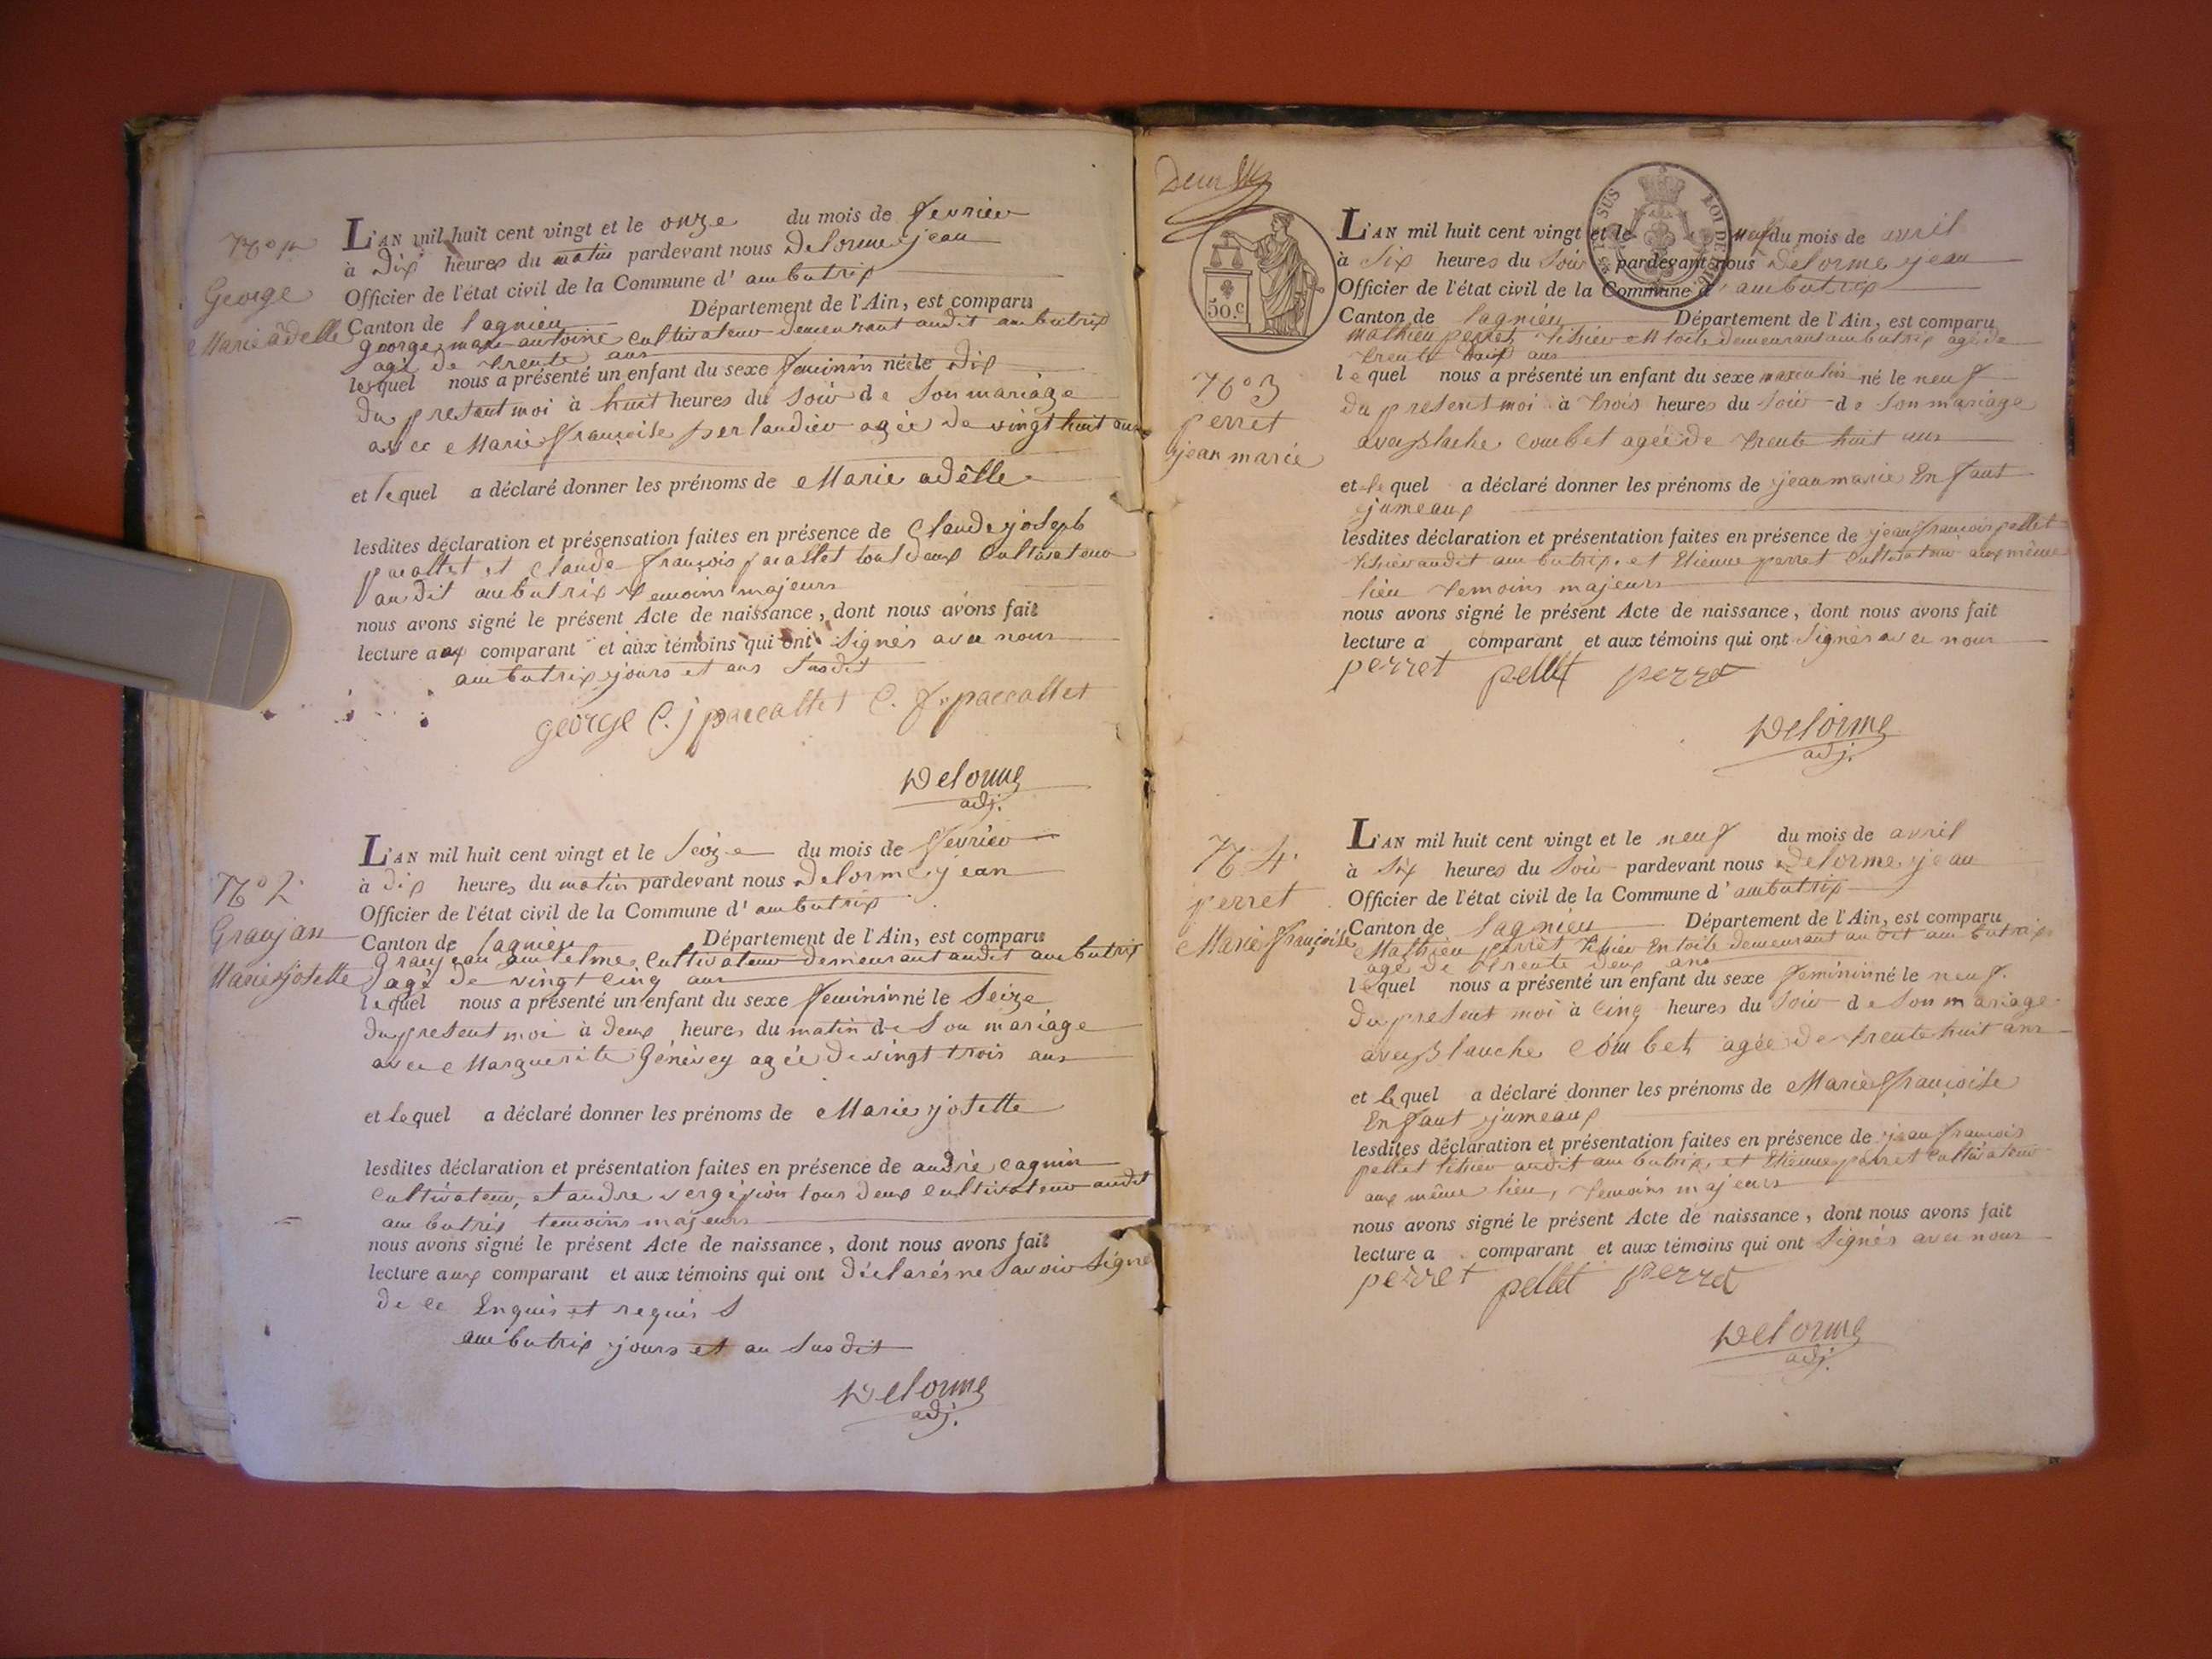 N.o 1er
George
Marie adelle
L'AN mil huit cent vingt et le onze du mois de fevrier
à Dix heures du matin pardevant nous Delorme jean
Officier de l'état civil de la Commune d'ambutrix
Canton de lagnieu Département de l'Ain, est comparu
george marc antoine Cultivateur demeurant audit ambutrix
agé de trente ans
lequel nous a présenté un enfant du sexe feminin née le Dix
du present moi à huit heures du soir de Son mariage
avec Marie françoise perlandier agée de vingt huit ans
et lequel a déclaré donner les prénoms de Marie adèlle
lesdites déclaration et présensation faites en présence de Claude joseph
pacallet et Claude françois pacallet tout deux Cultivateur
audit ambutrix temoins majeurs
nous avons signé le présent Acte de naissance, dont nous avons fait
lecture aux comparant et aux témoins qui ont Signés avec nous
ambutrix jours et ans Susdit
george C. j paccallet C. f. paccallet
Delorme
adj.
N.o 2.
Granjan
Marie josette
L'AN mil huit cent vingt et le Seize du mois de fevrier
à dix heures du matin pardevant nous Delorme jean
Officier de l'état civil de la Commune d'ambutrix
Canton de lagnieu Département de l'Ain, est comparu
Granjean antelme Cultivateur demeurant audit ambutrix
agé de vingt Cinq ans
lequel nous a présenté un enfant du sexe feminin né le Seize
du present moi à deux heures du matin de Son mariage
avec Marguerite Génévey agée de vingt trois ans
et lequel a déclaré donner les prénoms de Marie josette
lesdites déclaration et présentation faites en présence de andré cagnin
Cultivateur, et andre vergéjion tous deux Cultivateur audit
ambutrix temoins majeurs
nous avons signé le présent Acte de naissance, dont nous avons fait
lecture aux comparant et aux témoins qui ont déclarés ne Savoir Signé
de ce Enquis et requis
ambutrix jours et an Susdit
Delorme
adj.
50.c
N.o 3
perret
jean marie
L'AN mil huit cent vingt et le neuf du mois de avril
à Six heures du Soir pardevant nous Delorme jean
Officier de l'état civil de la Commune d'ambutrix
Canton de lagnieu Département de l'Ain, est comparu
mathieu perret titsier En toile demeurant ambutrix agé de
trente deux ans
lequel nous a présenté un enfant du sexe masculin né le neuf
du present moi à trois heures du Soir de Son mariage
avec Blache Combet agée de trente huit ans
et lequel a déclaré donner les prénoms de jean marie Enfant
jumeaux
lesdites déclaration et présentation faites en présence de jean françois pellet
titsier audit ambutrix. et Etienne perret Cultivateur aux même
lieu temoins majeurs
nous avons signé le présent Acte de naissance, dont nous avons fait
lecture a comparant et aux témoins qui ont Signés avec nous
perret pellet perret
Delorme
adj.
N.o 4.
perret
Marie françoise
L'AN mil huit cent vingt et le neuf du mois de avril
à Six heures du Soir pardevant nous Delorme jean
Officier de l'état civil de la Commune d'ambutrix
Canton de lagnieu Département de l'Ain, est comparu
Mathieu perret titsier En toile demeurant au dit ambutrix
agé de trente deux ans
lequel nous a présenté un enfant du sexe feminin né le neuf.
du present moi à Cinq heures du Soir de Son mariage
avec Blauche Combet agée de trente huit ans
et lequel a déclaré donner les prénoms de Marie françoise
Enfant jumeaux
lesdites déclaration et présentation faites en présence de jean françois
pellet titsier audit ambutrix. et Etienne perret Cultivateur
aux même lieu, temoins majeurs
nous avons signé le présent Acte de naissance, dont nous avons fait
lecture a comparant et aux témoins qui ont Signés avec nous
perret pellet perret
Delorme
adj.